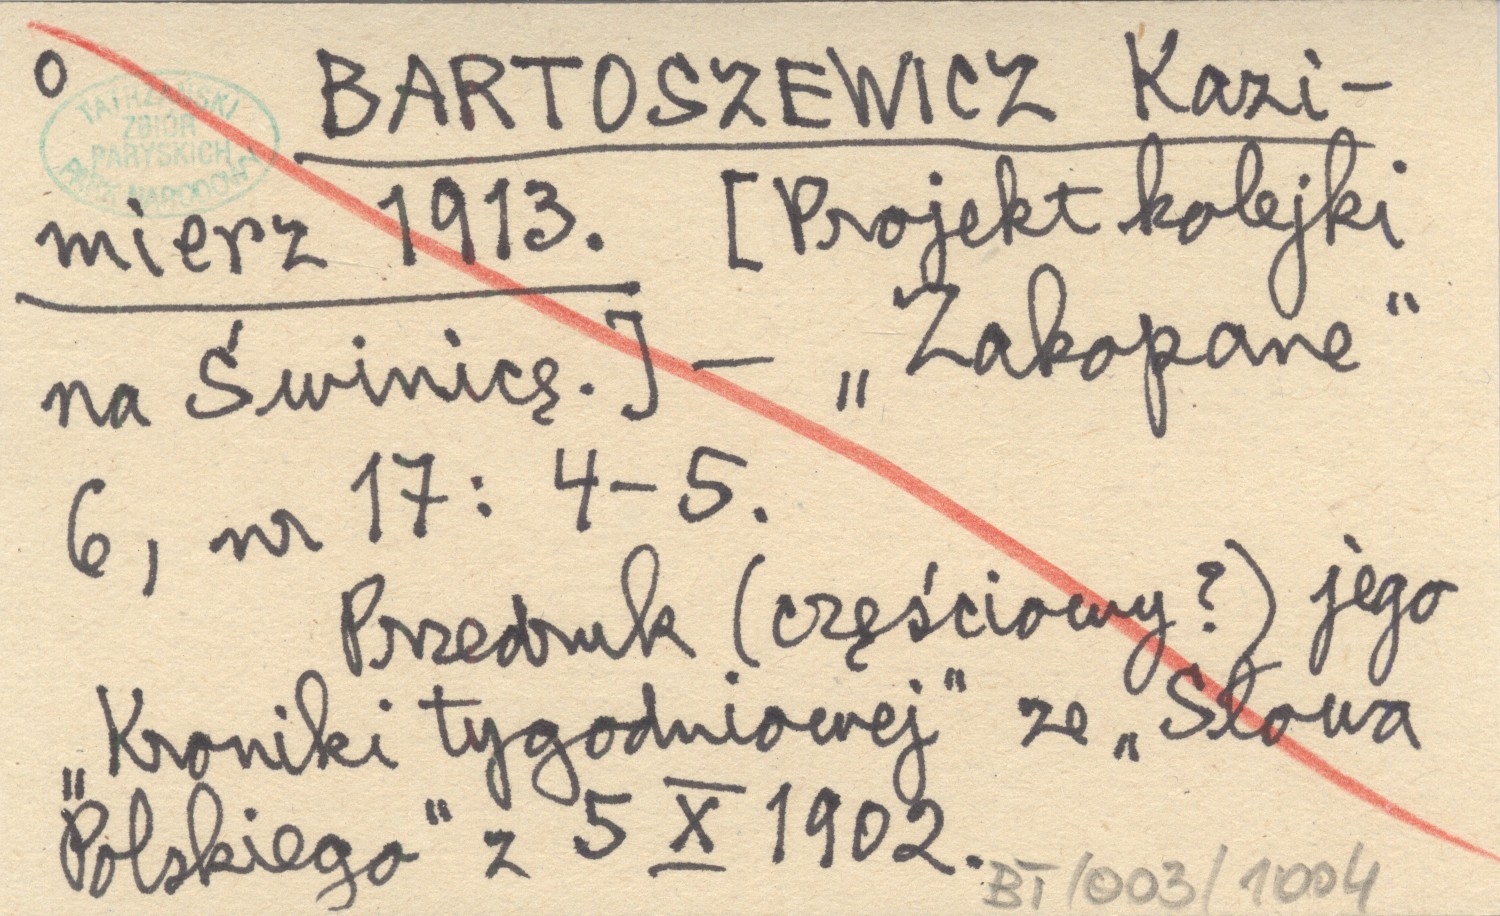 o BARTOSZEWICZ Kazi-
TATRZAŃSKI
ZBIÓR
PARYSKICH
PARK NARODOWY
mierz 1913. [Projekt kolejki
na Świnicę.] — „Zakopane"
6, nr 17: 4-5.
Przedruk (częściowy?) jego
„Kroniki tygodniowej" ze „Słowa
Polskiego" z 5 X 1902.
BT/003/1004